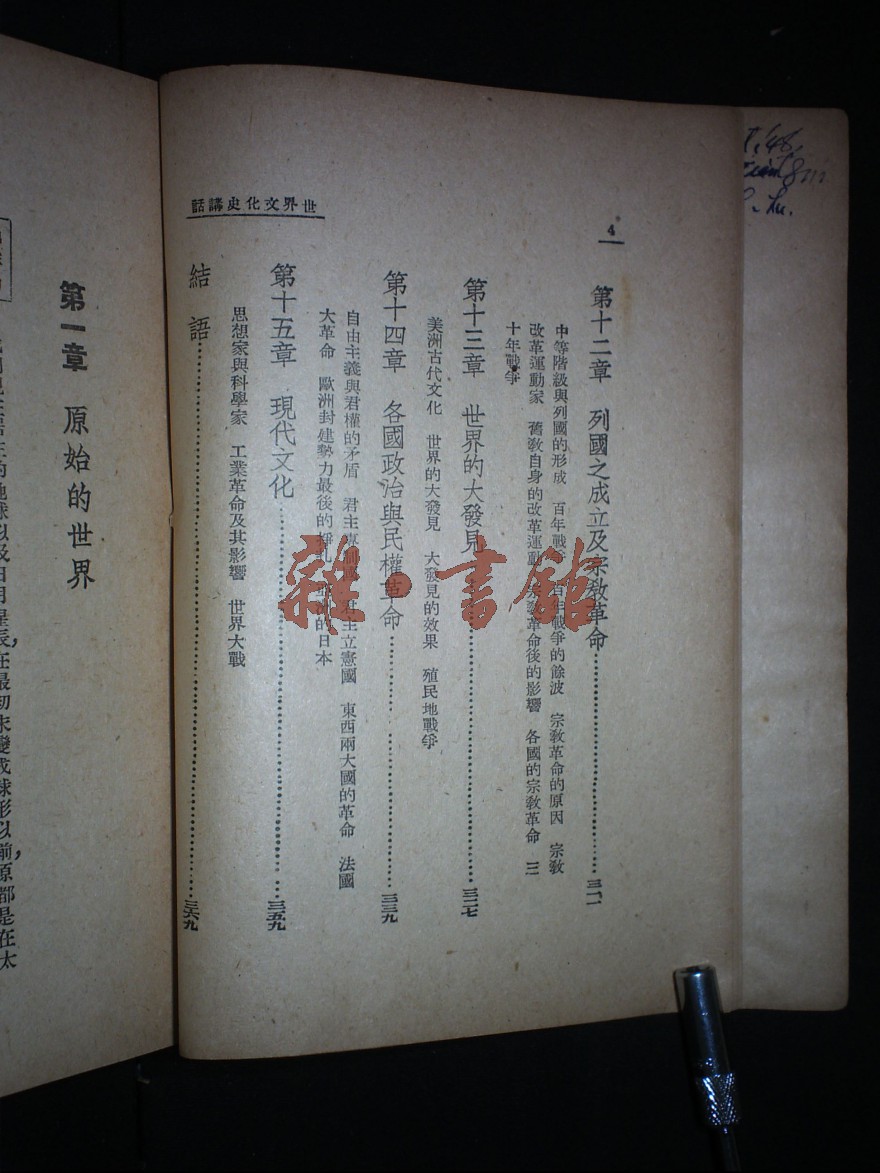 世界文化史講話
4
第十二章 列國之成立及宗教革命 三一一
中等階級與列國的形成 百年戰爭 百年戰爭的餘波 宗教革命的原因 宗教
改革運動家 舊教自身的改革運動 宗教革命後的影響 各國的宗教革命 三
十年戰爭
第十三章 世界的大發見 三二七
美洲古代文化 世界的大發見 大發見的效果 殖民地戰爭
第十四章 各國政治與民權革命 三三九
自由主義與君權的矛盾 君主專制國 君主立憲國 東西兩大國的革命 法國
大革命 歐洲封建勢力最後的掙扎 的日本
第十五章 現代文化 三五九
思想家與科學家 工業革命及其影響 世界大戰
結語 三六九
第一章 原始的世界
地球以及日月星辰,在最初未變成球形以前,原都是在太
雜·書館